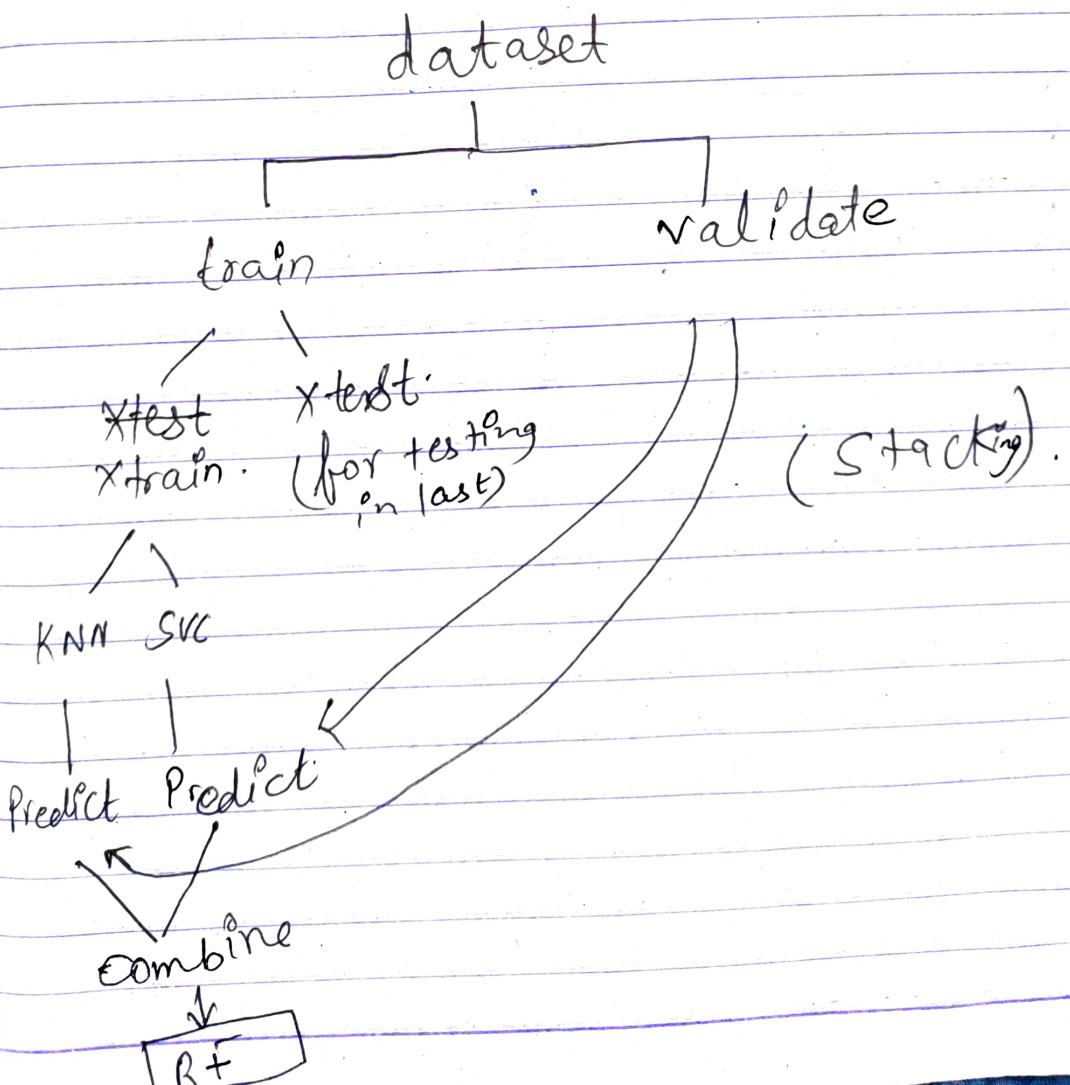 dataset
train
validate
Xtest
Xtrain.
Xtest.
(for testing
in last)
(Stacking).
KNN
SVC
Predict
Predict.
Combine
RF